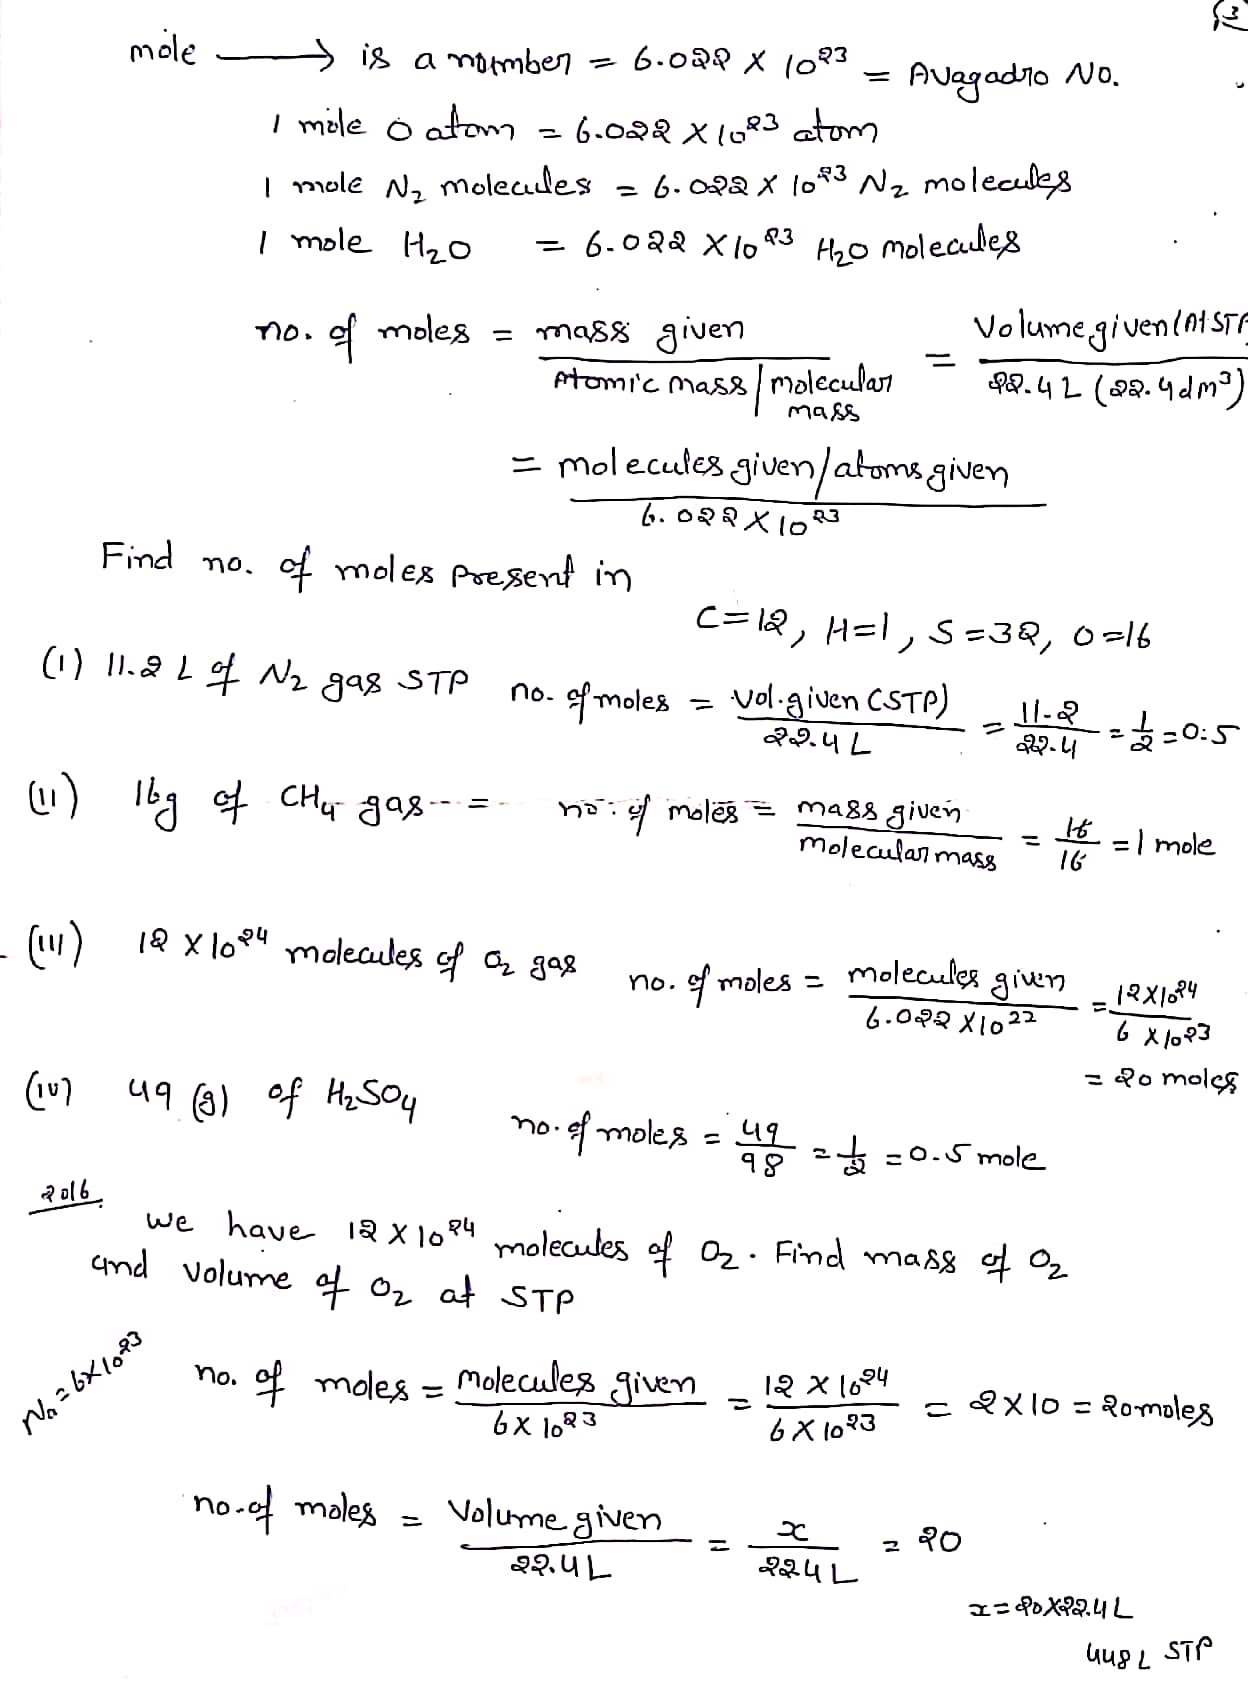 3
mole ⟶ is a number = 6.022 X 10²³ = Avagadro No.
1 mole O atom = 6.022 X 10²³ atom
1 mole N₂ molecules = 6.022 X 10²³ N₂ molecules
1 mole H₂O = 6.022 X 10²³ H₂O molecules
no. of moles = mass given / Atomic mass/molecular mass = Volume given (At STP / 22.4 L (22.4 dm³)
= molecules given/atoms given / 6.022 X 10²³
Find no. of moles present in
C=12, H=1, S=32, O=16
(i) 11.2 L of N₂ gas STP no. of moles = Vol. given (STP) / 22.4 L = 11.2 / 22.4 = 1/2 = 0.5
(ii) 16g of CH₄ gas = no. of moles = mass given / molecular mass = 16/16 = 1 mole
(iii) 12 X 10²⁴ molecules of O₂ gas no. of moles = molecules given / 6.022 X 10²² = 12X10²⁴ / 6 X 10²³
= 20 moles
(iv) 49 (g) of H₂SO₄ no. of moles = 49/98 = 1/2 = 0.5 mole
2016.
we have 12 X 10²⁴ molecules of O₂. Find mass of O₂
and volume of O₂ at STP
N₀ = 6X10²³
no. of moles = molecules given / 6X 10²³ = 12 X 10²⁴ / 6 X 10²³ = 2 X 10 = 20 moles
no. of moles = Volume given / 22.4 L = x / 224 L = 20
x = 20X22.4 L
448 L STP